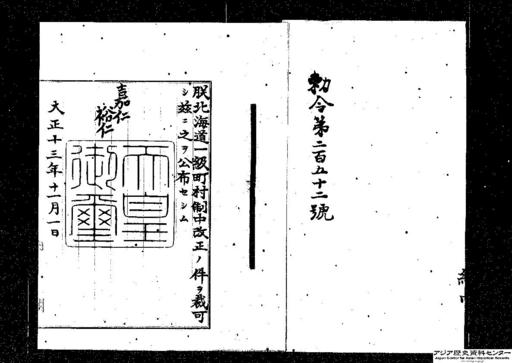 勅令第二百五十二號
朕北海道一級町村制中改正ノ件ヲ裁可
シ茲ニ之ヲ公布セシム
嘉仁
裕仁
天皇
御璽
大正十三年十一月一日
アジア歴史資料センター
Japan Center for Asian Historical Records